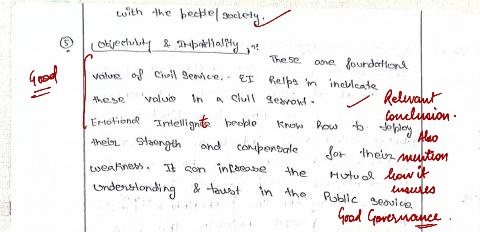 with the people/society.
⑤ Objectivity & Impartiality,":
These are foundational
Good
value of Civil Service.. EI helps in inculcate
these value in a Civil Servant.
Relevant
conclusion.
Emotional Intelligents people know how to deploy
Also
their strength and compensate for their
mention
weakness. It can increase the Mutual
how it
ensures
understanding & trust in the Public service
Good Governance.